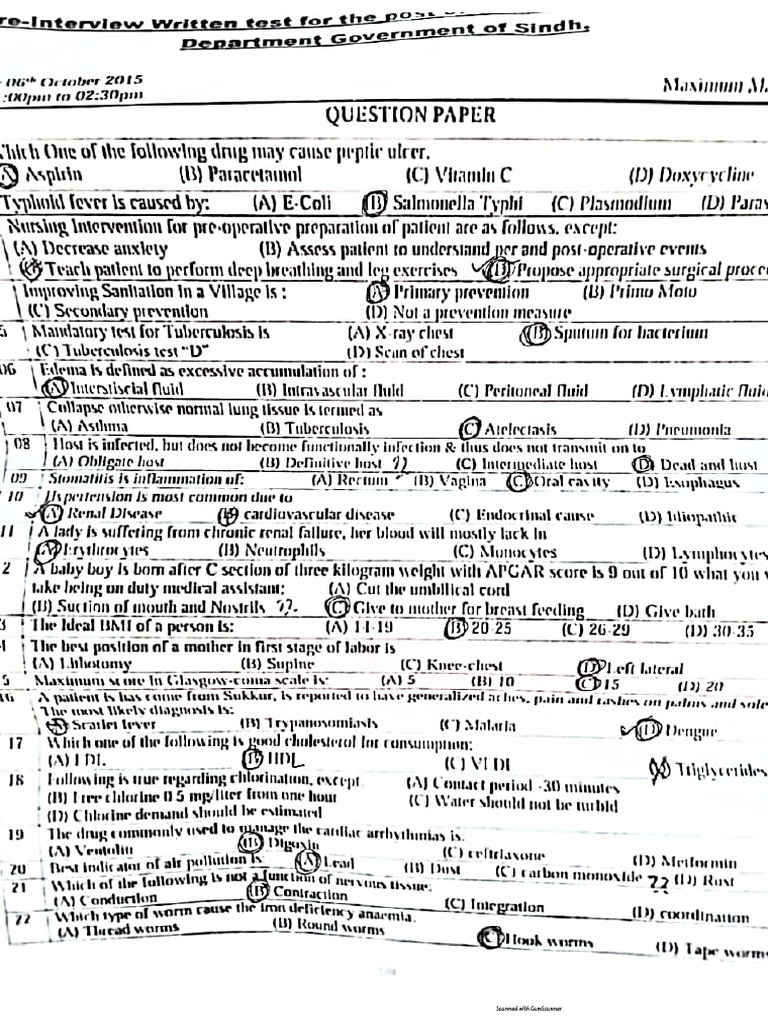 re-Interview Written test for the post
Department Government of Sindh.
06th October 2015
:00pm to 02:30pm Maximum M
QUESTION PAPER
hich One of the following drug may cause peptic ulcer.
(A) Aspirin (B) Paracetamol (C) Vitamin C (D) Doxycycline
Typhoid fever is caused by: (A) E-Coli (B) Salmonella Typhi (C) Plasmodium (D) Paras
Nursing Intervention for pre-operative preparation of patient are as follows, except:
(A) Decrease anxiety (B) Assess patient to understand per and post-operative events
Teach patient to perform deep breathing and leg exercises (D) Propose appropriate surgical proce
Improving Sanitation in a Village is : (A) Primary prevention (B) Primo Moto
(C) Secondary prevention (D) Not a prevention measure
5 Mandatory test for Tuberculosis is (A) X-ray chest (B) Sputum for bacterium
(C) Tuberculosis test "D" (D) Scan of chest
06 Edema is defined as excessive accumulation of :
(A) Interstiscial fluid (B) Intravascular fluid (C) Peritoneal fluid (D) Lymphatic fluid
07 Collapse otherwise normal lung tissue is termed as
(A) Asthma (B) Tuberculosis (C) Atelectasis (D) Pneumonia
08 Host is infected, but does not become functionally infection & thus does not transmit on to
(A) Obligate host (B) Definitive host ?? (C) Intermediate host (D) Dead end host
09 Stomatitis is inflamation of: (A) Rectum (B) Vagina (C) Oral cavity (D) Esophagus
10 Hypertension is most common due to
(A) Renal Disease (B) cardiovascular disease (C) Endocrinal cause (D) Idiopathic
11 A lady is suffering from chronic renal failure, her blood will mostly lack in
(A) Erythrocytes (B) Neutrophils (C) Monocytes (D) Lymphocytes
2 A baby boy is born after C section of three kilogram weight with APGAR score is 9 out of 10 what you
take being on duty medical assistant: (A) Cut the umbilical cord
(B) Suction of mouth and Nostrils ?? (C) Give to mother for breast feeding (D) Give bath
3 The Ideal BMI of a person is: (A) 14-19 (B) 20-25 (C) 26-29 (D) 30-35
4 The best position of a mother in first stage of labor is
(A) Lithotomy (B) Supine (C) Knee-chest (D) Left lateral
5 Maximum score in Glasgow-coma scale is: (A) 5 (B) 10 (C) 15 (D) 20
16 A patient is has come from Sukkur, is reported to have generalized aches, pain and rashes on palms and sole
The most likely diagnosis is:
(A) Scarlet fever (B) Trypanosomiasis (C) Malaria (D) Dengue
17 Which one of the following is good cholesterol for consumption:
(A) LDL (B) HDL (C) VLDL Triglycerides
18 Following is true regarding chlorination, except: (A) Contact period -30 minutes
(B) Free chlorine 0.5 mg/liter from one hour (C) Water should not be turbid
(D) Chlorine demand should be estimated
19 The drug commonly used to manage the cardiac arrhythmias is:
(A) Ventolin (B) Digoxin (C) ceftriaxone (D) Metformin
20 Best indicator of air pollution is: (A) Lead (B) Dust (C) carbon monoxide ?? (D) Rust
21 Which of the following is not a function of nervous tissue:
(A) Conduction (B) Contraction (C) Integration (D) coordination
22 Which type of worm cause the iron deficiency anaemia:
(A) Thread worms (B) Round worms (C) Hook worms (D) Tape worms
Scanned with CamScanner